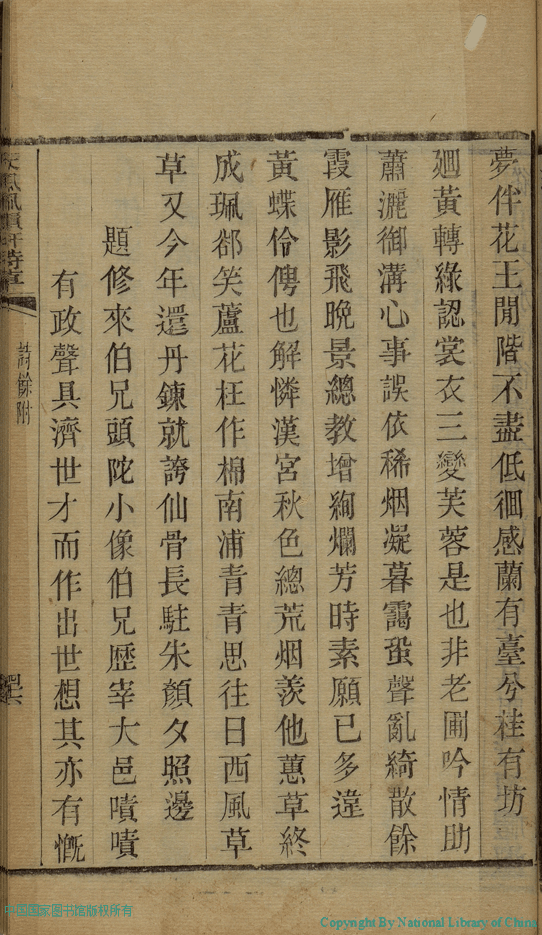 夢伴花王閒階不盡低徊感蘭有臺兮桂有坊
廻黃轉綠認裳衣三變芙蓉是也非老圃吟情助
蕭灑御溝心事誤依稀烟凝暮靄蛩聲亂綺散餘
霞雁影飛晚景總教增絢爛芳時素願已多違
黃蝶伶俜也解憐漢宮秋色總荒烟羨他蕙草終
成珮郤笑蘆花枉作棉南浦青青思往日西風草
草又今年還丹鍊就誇仙骨長駐朱顏夕照邊
題修來伯兄頭陀小像伯兄歷宰大邑嘖嘖
有政聲具濟世才而作出世想其亦有慨
詩餘附
中国国家图书馆版权所有
Copyright By National Library of China